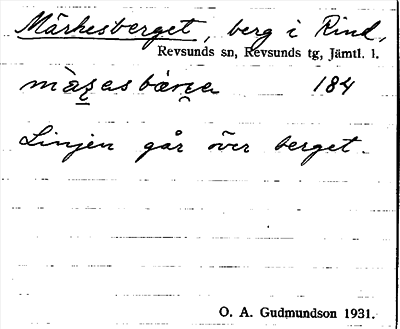 Märkesberget, berg i Rind,
Revsunds sn, Revsunds tg, Jämtl. l.
184
Linjen går över berget.
O. A. Gudmundson 1931.